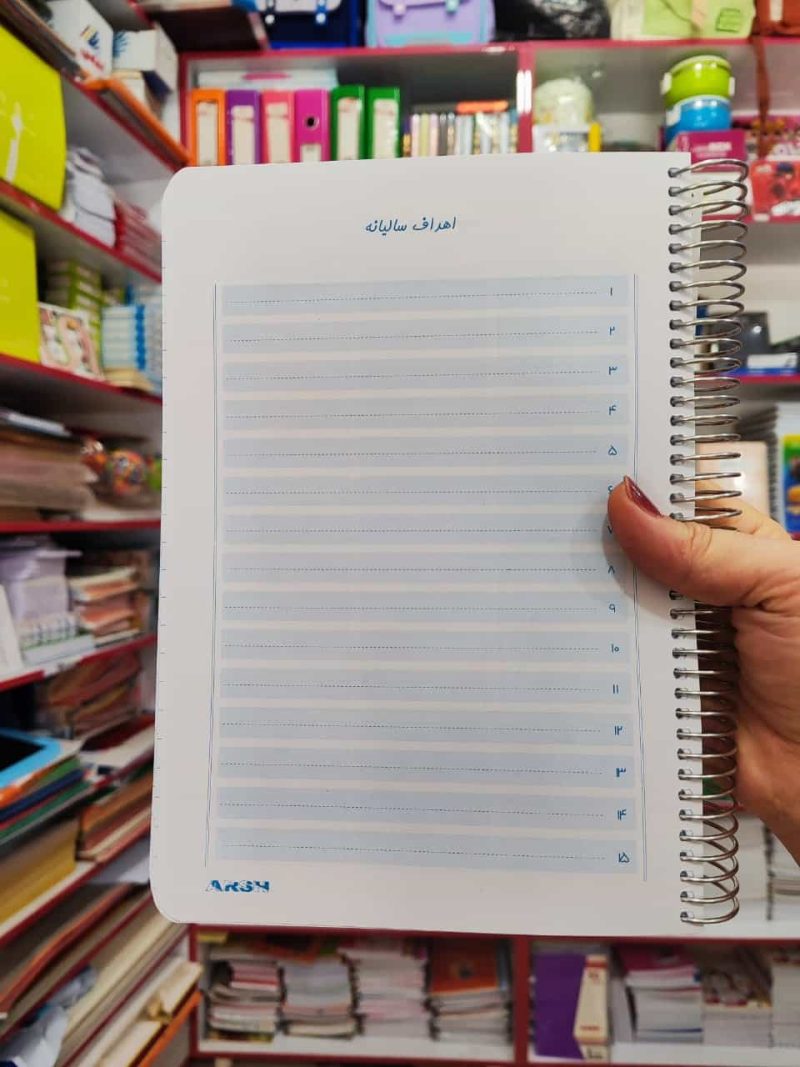 اهداف سالیانه
۱
۲
۳
۴
۵
۶
۷
۸
۹
۱۰
۱۱
۱۲
۱۳
۱۴
۱۵
ARSH